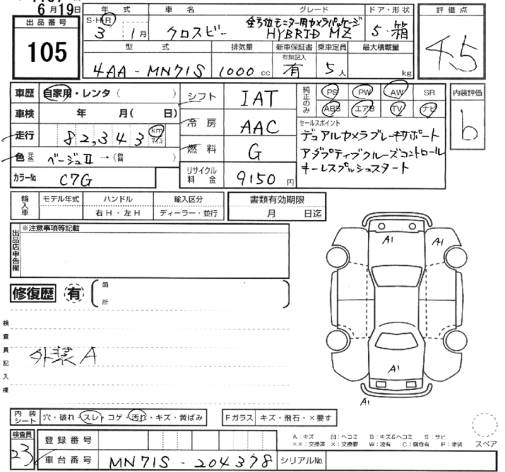 6月19日
出品番号
105
年式
S・H・R 3年 1月
車名
クロスビー
グレード
全方位モニター用カメラパッケージ
HYBRID MZ
ドア・形状
5・箱
評価点
4.5
型式
4AA-MN71S
排気量
1000 cc
新車保証書
有無記入
有
乗車定員
5人
最大積載量
kg
車歴 自家用・レンタ( )
車検 年 月( 日)
走行 82,343 km
色 ベージュⅡ →(
カラー№ C7G
シフト IAT
冷房 AAC
燃料 G
リサイクル料金 9150円
純正のみ
PS PW AW SR
ABS エアB TV ナビ
セールスポイント
デュアルカメラブレーキサポート
アダプティブクルーズコントロール
キーレスプッシュスタート
内装評価
b
輸入車
モデル年式
ハンドル
右H・左H
輸入区分
ディーラー・並行
書類有効期限
月 日迄
出品店申告欄
※注意事項等記載
修復歴 有
箇所
検査員記入欄
外装A
A1 A1
A1
内装シート 穴・破れ・スレ・コゲ・汚れ・キズ・黄ばみ
Fガラス キズ・飛石・×要す
スペア
検査員
23
登録番号
車台番号 MN71S-204378
シリアル№
A:キズ